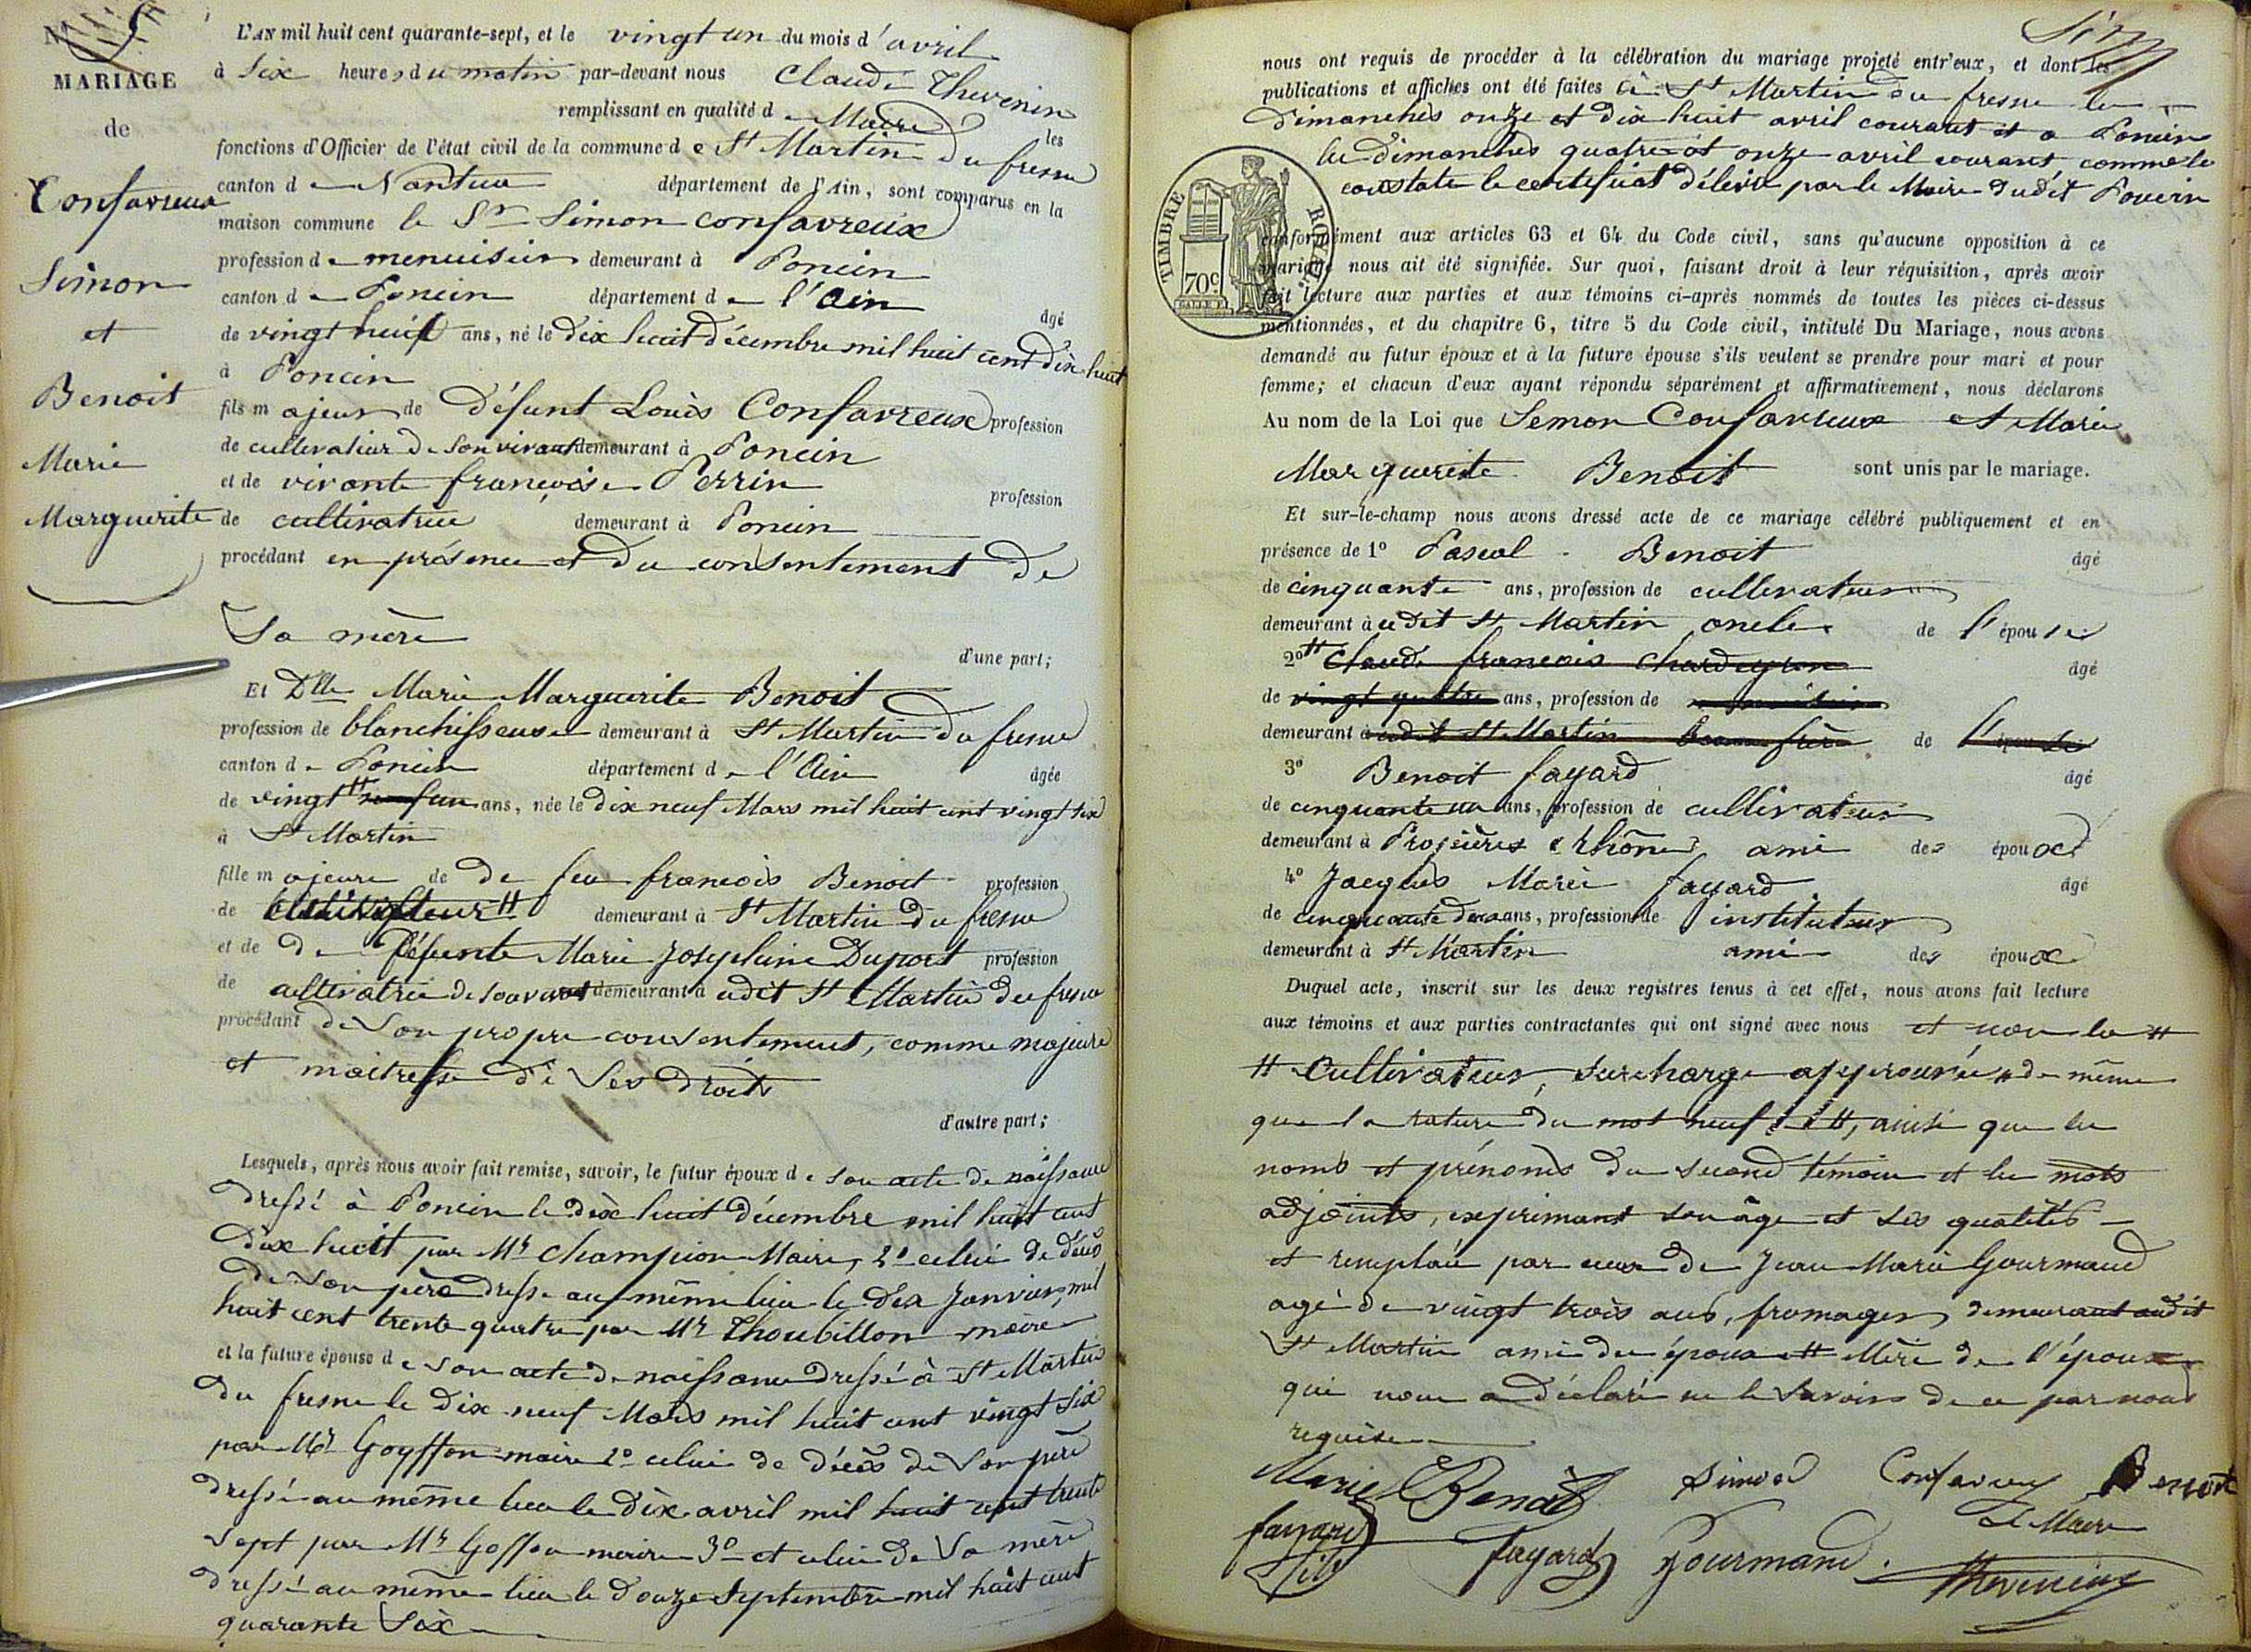 N° 5
MARIAGE
de
Confavreux
Simon
et
Benoit
Marie
Marguerite
L'AN mil huit cent quarante-sept, et le vingt un du mois d'avril
à Six heures du matin par-devant nous Claude Thevenin
remplissant en qualité de Maire les
fonctions d'Officier de l'état civil de la commune de St Martin du fresne
canton de Nantua département de l'Ain, sont comparus en la
maison commune le Sr Simon Confavreux
profession de menuisier demeurant à Poncin
canton de Poncin département de l'Ain âgé
de vingt huit ans, né le dix huit décembre mil huit cent dix huit
à Poncin
fils majeur de défunt Louis Confavreux profession
de cultivateur de son vivant demeurant à Poncin
et de vivante françoise Perrin profession
de cultivatrice demeurant à Poncin
procédant en présence et du consentement de
Sa mère
d'une part;
Et Dlle Marie Marguerite Benoit
profession de blanchisseuse demeurant à St Martin du fresne
canton de Poncin département de l'Ain âgée
de vingt # neuf un ans, née le dix neuf Mars mil huit cent vingt six
à St Martin
fille majeure de de feu françois Benoit profession
de cultivateur # demeurant à St Martin du fresne
et de de défunte Marie Joséphine Duport profession
de cultivatrice de son vivant demeurant à udit St Martin du fresne
procédant de Son propre consentement, comme majeure
et maitresse de Ses droits
d'autre part;
Lesquels, après nous avoir fait remise, savoir, le futur époux de son acte de naissance
dressé à Poncin le dix huit décembre mil huit cent
dix huit par Mr Champion Maire, 2° celui de décès
de Son père dressé au même lieu le dix Janvier mil
huit cent trente quatre par Mr Thoubillon maire
et la future épouse de son acte de naissance dressé à St Martin
du fresne le dix neuf Mars mil huit cent vingt Six
par Mr Goyffon maire 2° celui de décès de Son père
dressé au même lieu le dix avril mil huit cent trente
sept par Mr Goffon maire 3° et celui de Sa mère
dressé au même lieu le douze Septembre mil huit cent
quarante Six
nous ont requis de procéder à la célébration du mariage projeté entr'eux, et dont les
publications et affiches ont été faites à St Martin du fresne les
dimanches onze et dix huit avril courant et à Poncin
les dimanches quatre et onze avril courant comme le
constate le certificat délivré par le Maire dudit Poncin
TIMBRE ROYAL
70c
conformément aux articles 63 et 64 du Code civil, sans qu'aucune opposition à ce
mariage nous ait été signifiée. Sur quoi, faisant droit à leur réquisition, après avoir
fait lecture aux parties et aux témoins ci-après nommés de toutes les pièces ci-dessus
mentionnées, et du chapitre 6, titre 5 du Code civil, intitulé Du Mariage, nous avons
demandé au futur époux et à la future épouse s'ils veulent se prendre pour mari et pour
femme; et chacun d'eux ayant répondu séparément et affirmativement, nous déclarons
Au nom de la Loi que Semon Confavreux et Marie
Marguerite Benoit sont unis par le mariage.
Et sur-le-champ nous avons dressé acte de ce mariage célébré publiquement et en
présence de 1° Pascal Benoit âgé
de cinquante ans, profession de cultivateur
demeurant à udit St Martin oncle de l'épouse
2° # Claude françois âgé
de vingt quatre ans, profession de menuisier
demeurant à udit St Martin beau frère de l'épouse
3° Benoit fayard âgé
de cinquante un ans, profession de cultivateur
demeurant à Propières (Rhône) ami des époux
4° Jacques Marie fayard âgé
de cinquante deux ans, profession de instituteur
demeurant à St Martin ami des époux
Duquel acte, inscrit sur les deux registres tenus à cet effet, nous avons fait lecture
aux témoins et aux parties contractantes qui ont signé avec nous et non la #
# Cultivateur, surcharge approuvée # de même
que la rature du mot neuf #, ainsi que les
noms et prénoms du second témoin et les mots
adjoints, exprimant son âge et ses qualités
et remplacé par ceux de Jean Marie Gourmand
agé de vingt trois ans, fromager, demeurant audit
St Martin ami des époux # Mère de l'époux
qui nous a déclaré ne le Savoir de ce par nous
requise
Marie Benoit Simon Confavreux Benoit
fayard fayard Gourmand Le Maire
Thevenin